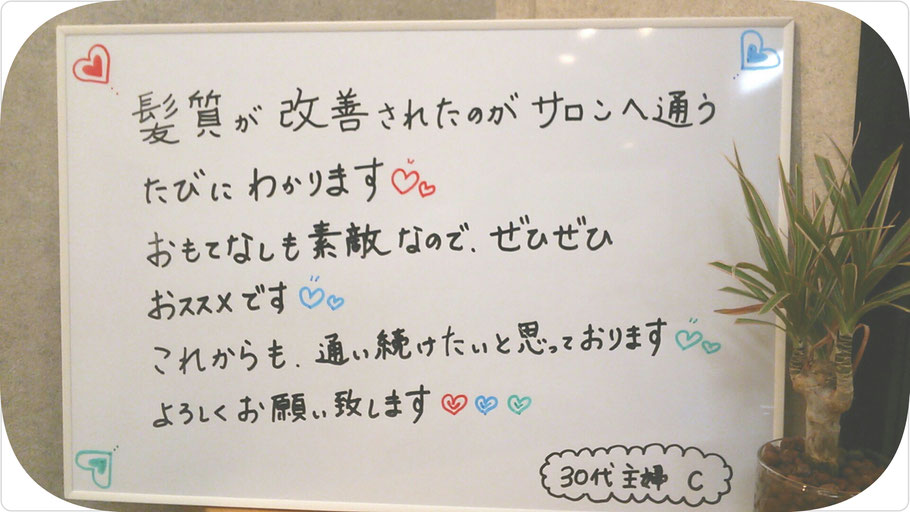 髪質が改善されたのがサロンへ通う
たびにわかります
おもてなしも素敵なので、ぜひぜひ
おススメです
これからも、通い続けたいと思っております
よろしくお願い致します
30代主婦 C